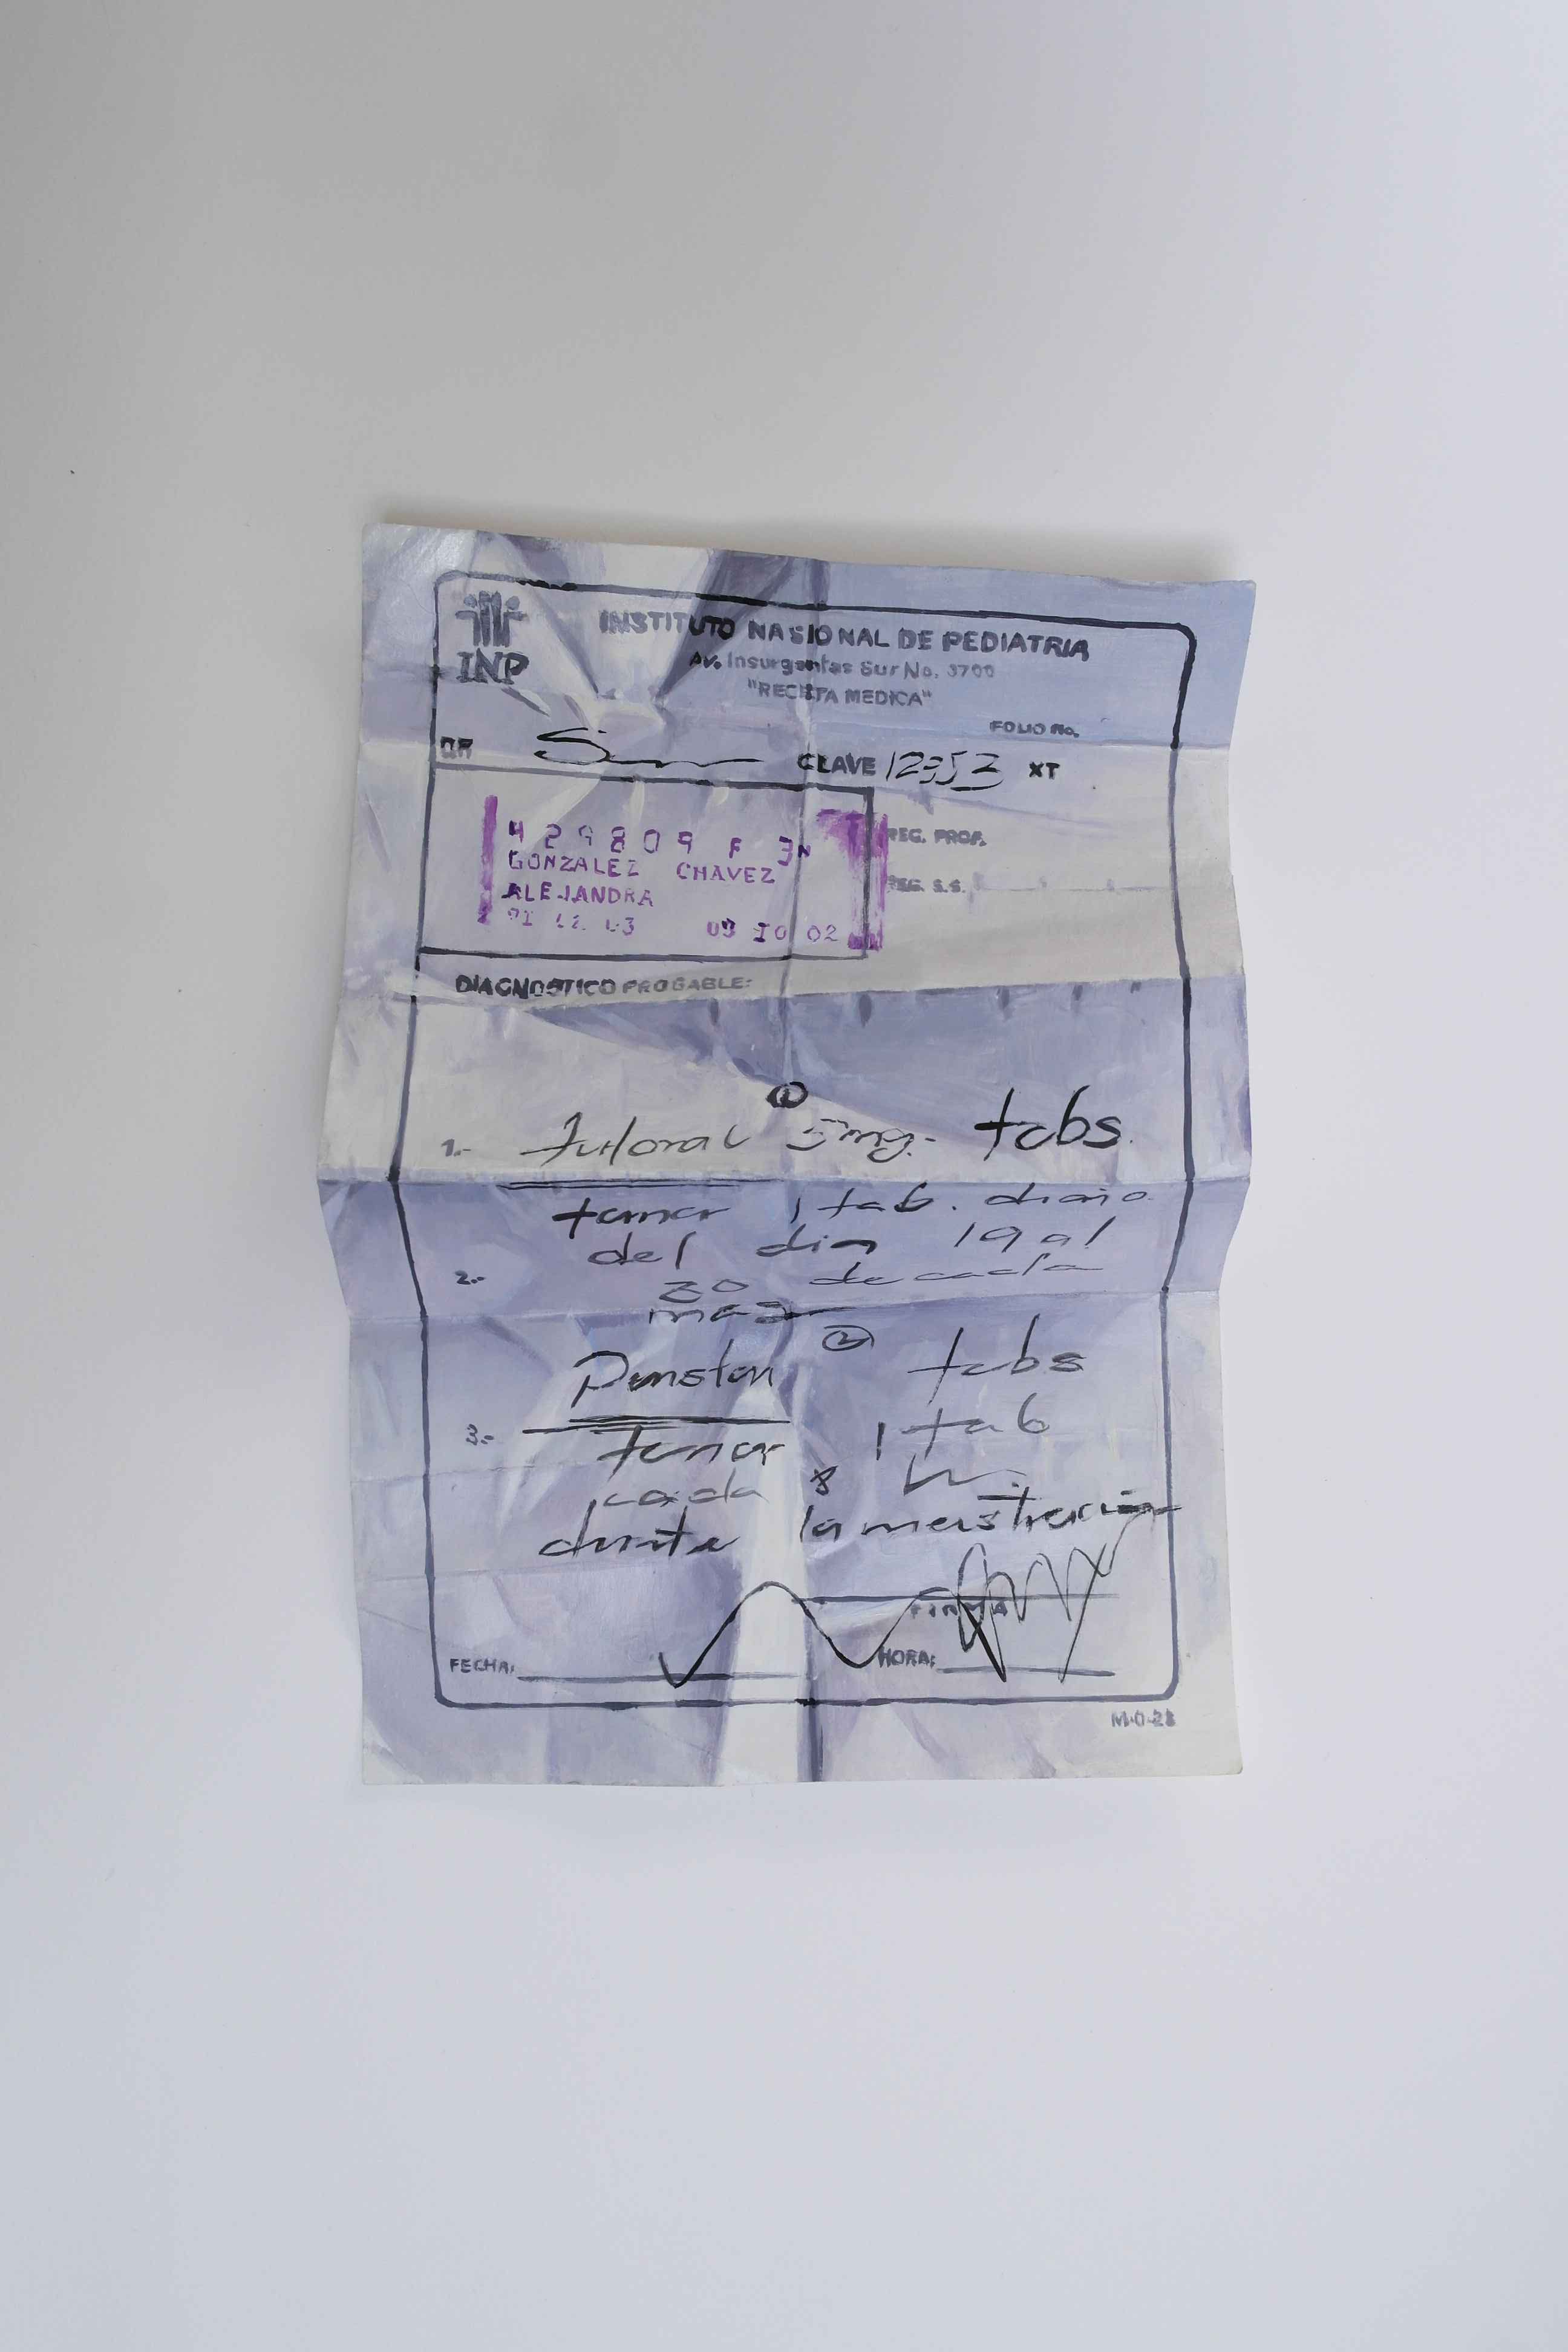 INP
INSTITUTO NASIONAL DE PEDIATRIA
Av. Insurgentes Sur No. 3700
"RECETA MEDICA"
FOLIO No.
DR CLAVE 12353 XT
429809 F
GONZALEZ CHAVEZ
ALEJANDRA
03 10 02
REG. PROF.
REG. S.S.
DIAGNOSTICO PROBABLE:
1
1.- 5mg. tabs.
tomar 1 tab. diario
del dia 19 al
2.- 30 de cada
mes
2
Ponstan tabs
3.- Tomar 1 tab
cada 8 h.
durante la menstruación
FIRMA
FECHA: HORA:
M-0-28